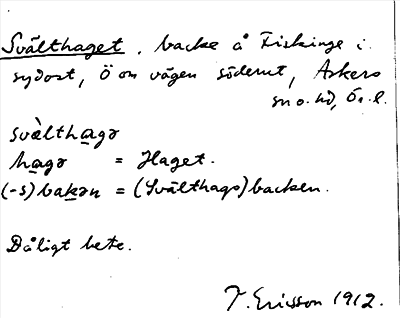 Svälthaget, backe å Fiskinge i
sydost, Ö om vägen söderut, Askers
sn o. hd, Ör. l.
svàlthagə
hagə = Haget.
(-s)bakən = (Svälthags)backen.
Dåligt bete.
T. Ericsson 1912.